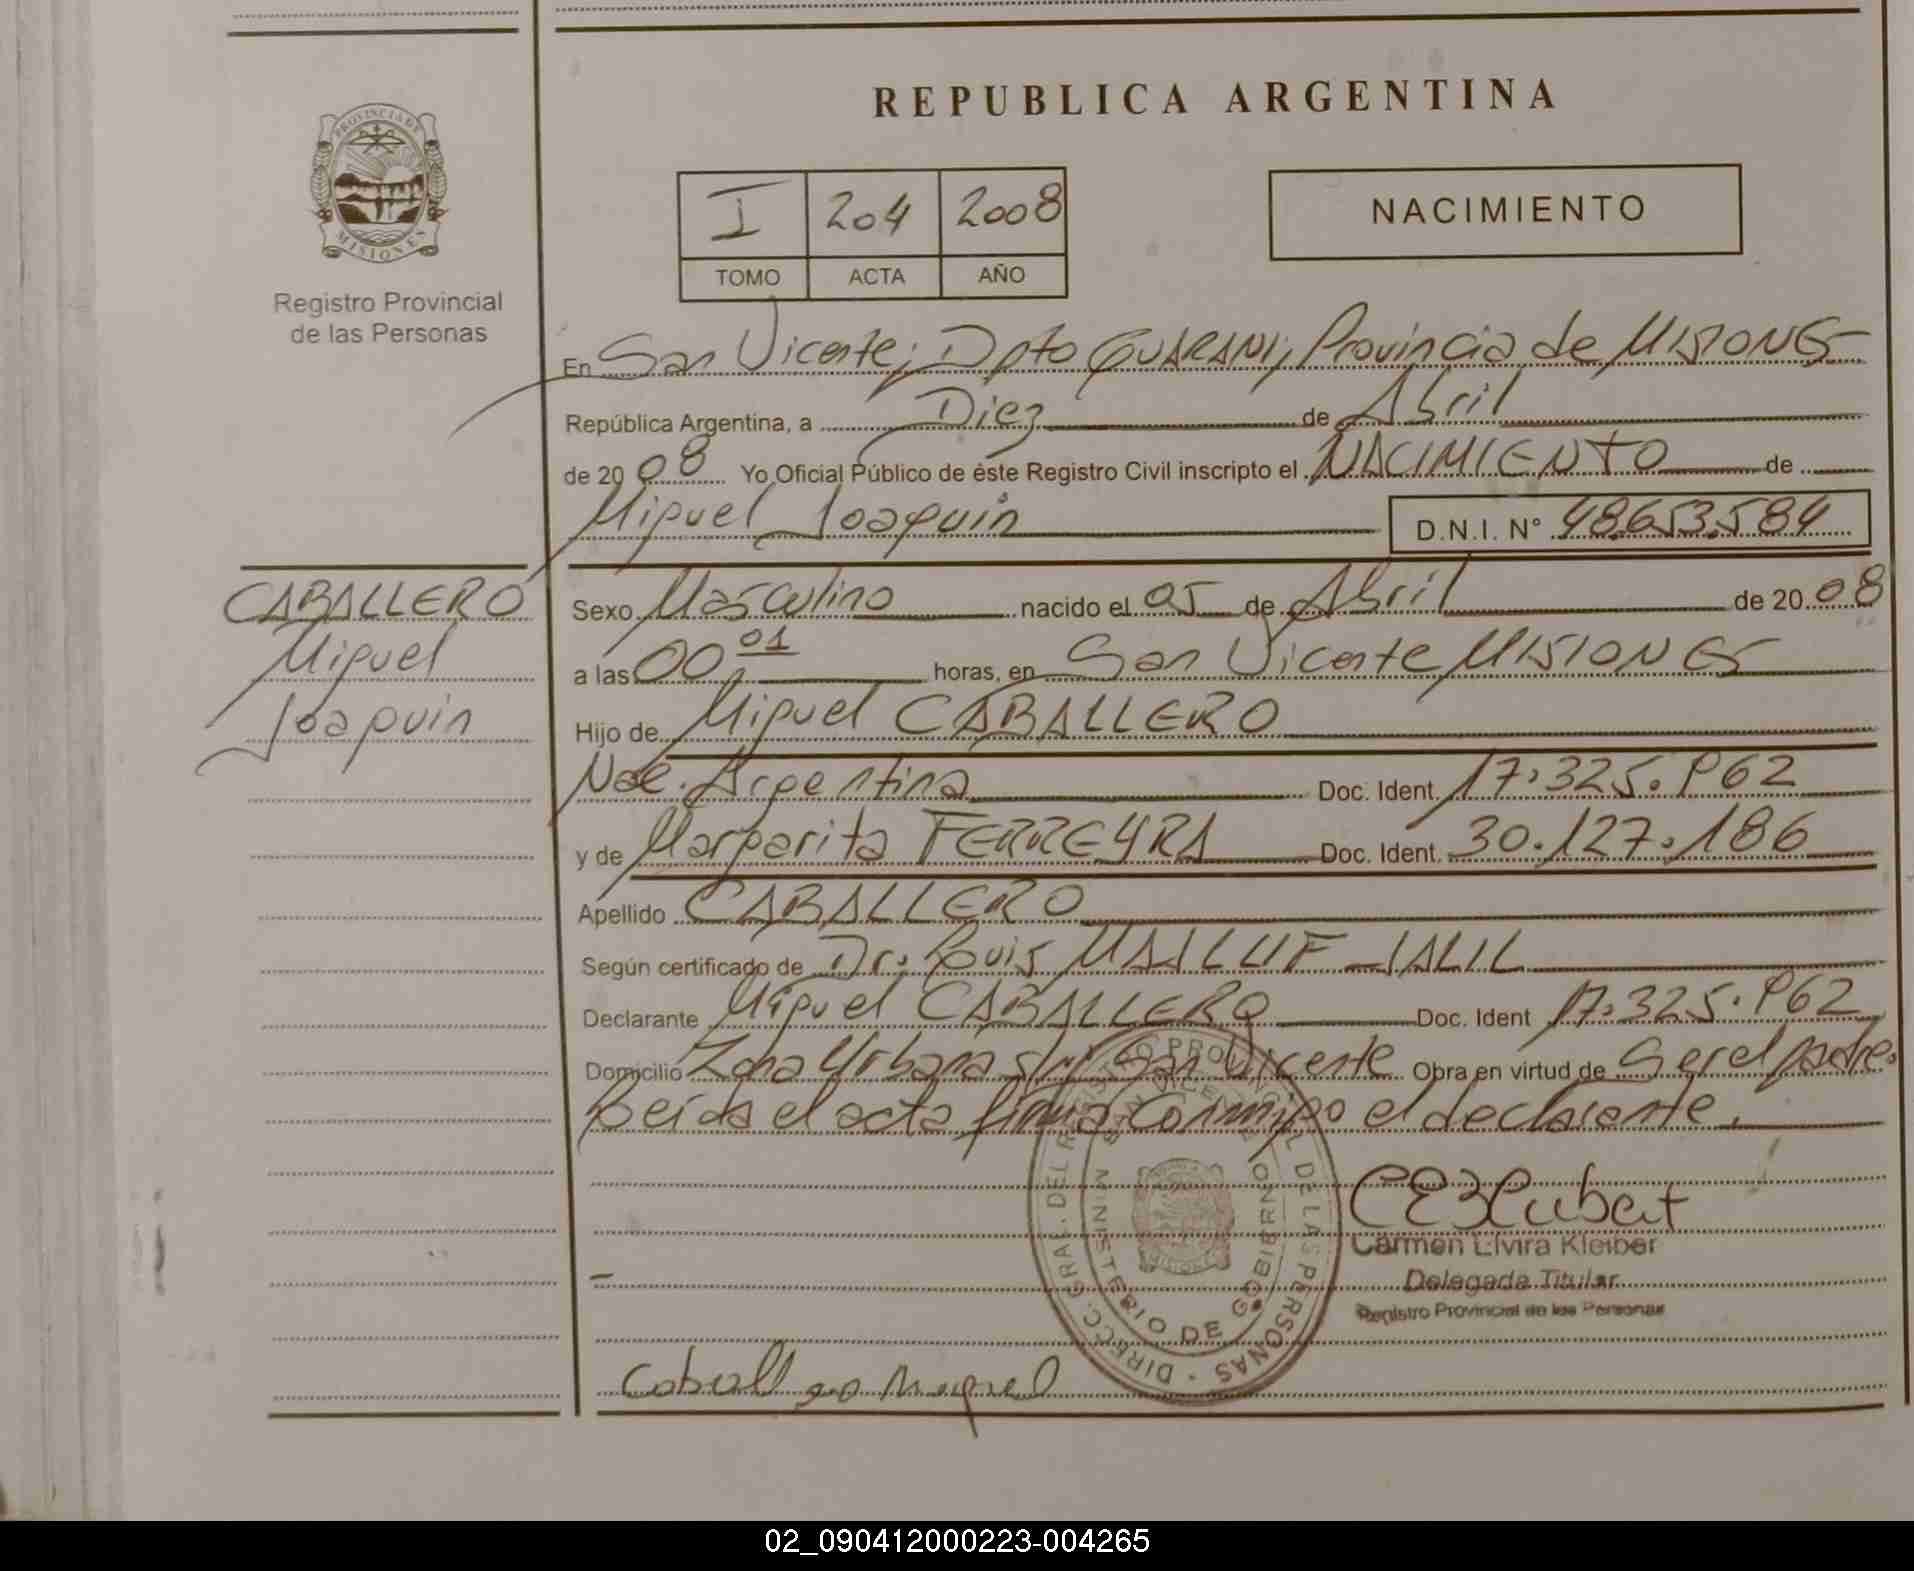 REPUBLICA ARGENTINA
PROVINCIA DE
MISIONES
Registro Provincial
de las Personas
I 204 2008
TOMO ACTA AÑO
NACIMIENTO
En San Vicente, Dpto GUARANI, Provincia de MISIONES
República Argentina, a Diez de Abril
de 2008 Yo Oficial Público de éste Registro Civil inscripto el NACIMIENTO de
Miguel Joaquin D.N.I. N° 48.653.584
CABALLERO
Miguel
Joaquin
Sexo Masculino nacido el 05 de Abril de 2008
a las 00 01 horas, en San Vicente MISIONES
Hijo de Miguel CABALLERO
Nac. Argentina Doc. Ident. 17.325.962
y de Margarita FERREYRA Doc. Ident. 30.127.186
Apellido CABALLERO
Según certificado de Dr. Luis MAILUF JALIL
Declarante Miguel CABALLERO Doc. Ident 17.325.962
Domicilio Zona Urbana s/n San Vicente Obra en virtud de Ser el padre.
Leída el acta firma conmigo el declarante.
DIRECC. GRAL. DEL REGISTRO PROVINCIAL DE LAS PERSONAS
MINISTERIO DE GOBIERNO
SAN VICENTE
MISIONES
Carmen Elvira Kleiber
Delegada Titular
Registro Provincial de las Personas
Caballero Miguel
02_090412000223-004265